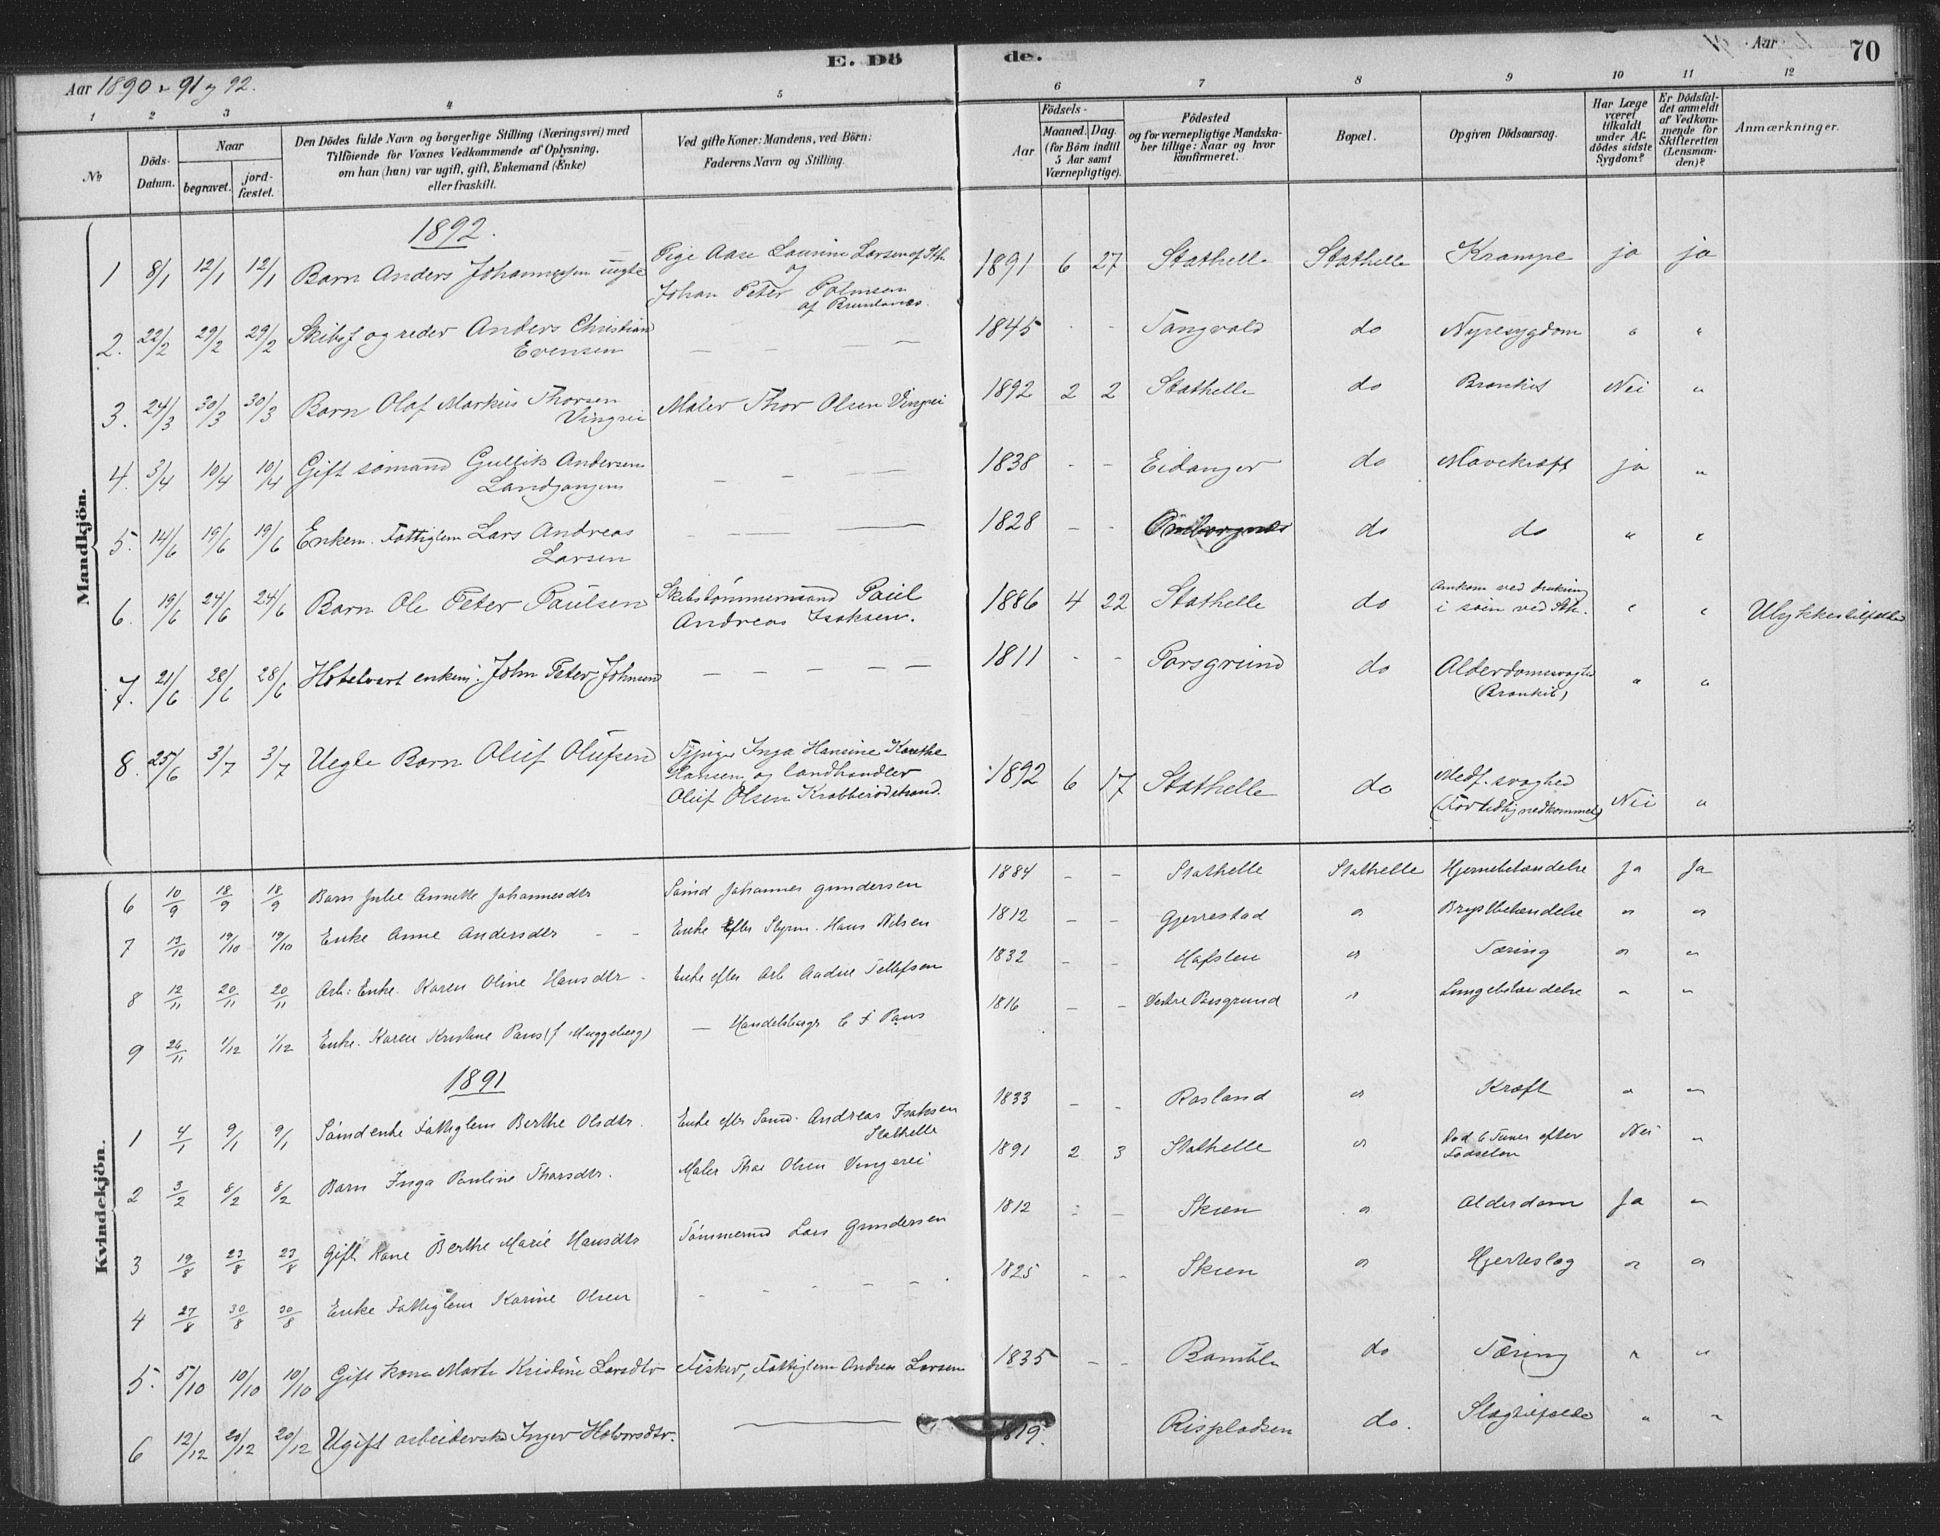 Aar 1890 - 91 og 92.
E. Dö
de.
Aar
70
1 2 3 4 5 6 7 8 9 10 11 12
No
Döds-Datum.
Naar
begravet.
jord-fæstet.
Den Dödes fulde Navn og borgerlige Stilling (Næringsvei) med
Tilföiende for Voxnes Vedkommende af Oplysning,
om han (hun) var ugift, gift, Enkemand (Enke)
eller fraskilt.
Ved gifte Koner: Mandens, ved Börn:
Faderens Navn og Stilling.
Födsels-
Aar
Maaned. Dag.
(for Börn indtil
5 Aar samt
Værnepligtige).
Födested
og for værnepligtige Mandska-
ber tillige: Naar og hvor
konfirmeret.
Bopæl.
Opgiven Dödsaarsag.
Har Læge
været
tilkaldt
under Af-
dödes sidste
Sygdom?
Er Dödsfal-
det anmeldt
af Vedkom-
mende for
Skifteretten
(Lensman-
den)?
Anmærkninger.
Mandkjön.
1892.
1 8/1 12/1 12/1 Barn Anders Johannesen uegte Pige Aase Lovisine Larsen af Sth. og 1891 6 27 Stathelle Stathelle Krampe ja ja
Johan Peter
af Brunlanes.
2. 22/2 29/2 29/2 Skibsf og reder Anders Christian — — — — 1845 - - Tangvald do Nyresygdom " "
Evensen
3. 24/3 30/3 30/3 Barn Olaf Markus Thorsen Maler Thor Olsen Vingrei 1892 2 2 Stathelle do Bronkit Nei "
Vingrei
4. 3/4 10/4 10/4 Gift sømand Gullik Andersen — — — 1838 - - Eidanger do Mavekræft ja "
Landgangen
5. 14/6 19/6 19/6 Enkem. Fattiglem Lars Andreas — — — 1828 - - do do " "
Larsen
6. 19/6 24/6 24/6 Barn Ole Peter Paulsen Skibstømmermand Paul 1886 4 22 Stathelle do Omkom ved drukning " " Ulykkestilfælde
Andreas Isaksen. i søen ved Sth.
7. 21/6 28/6 28/6 Hotelvert enkem. John Peter Johnsen — — — — 1811 - - Porsgrund do Alderdomssvaghed " "
(Bronkit)
8. 25/6 3/7 3/7 Uegte Barn Oluf Olufsen Tjpige Inga Hansine Karethe
Hansen og landhandler 1892 6 17 Stathelle do Medf. svaghed
Oluf Olsen Krabberødstrand. (For tidlig nedkommet) Nei "
Kvindekjön.
6 10/9 18/9 18/9 Barn Julie Annette Johannesdtr Sømd Johannes Gundersen 1884 - - Stathelle Stathelle Hjernebetændelse Ja Ja
7 13/10 19/10 19/10 Enke Anne Andersdtr - - Enke Efter Styrm. Hans Nilsen 1812 - - Gjerrestad " Brystbetændelse " "
8 12/11 20/11 20/11 Arb: Enke. Karen Oline Hansdtr - Enke efter Arb Tellefsen 1832 - - Hafslen " Tæring " "
9 26/11 1/12 1/12 Enke. Karen Kristine Paus (f. Muggeberg) — Handelsborgr C F Paus 1816 - - Vestre Porsgrund " Lungebetændelse " "
1891
1 4/1 9/1 9/1 Sømdenke Fattiglem Berthe Olsdtr. Enke efter Sømd. Andreas Isaksen 1833 - - Rosland " Kræft " "
Stathelle
2 3/2 8/2 8/2 Barn Inga Pauline Thorsdtr. Maler Thor Olsen Vingerei 1891 2 3 Stathelle " Død 6 Timer efter Nei "
Fødselen
3 19/8 23/8 23/8 Gift Kone Berthe Marie Hansdtr Tømmermd Lars Gundersen 1812 - - Skien " Alderdom Ja "
4 27/8 30/8 30/8 Enke Fattiglem Karine Olsen - - - - 1825 - - Skien " Hjerteslag " "
5. 5/10 10/10 10/10 Gift kone Marte Kristine Larsdtr Fisker, Fattiglem Andreas Larsen 1835 - - Bamble do Tæring " "
6 12/12 20/12 20/12 Ugift arbeiderske Inger Halvorsdtr. — 1819. Rispladsen do. Slagtilfælde " "